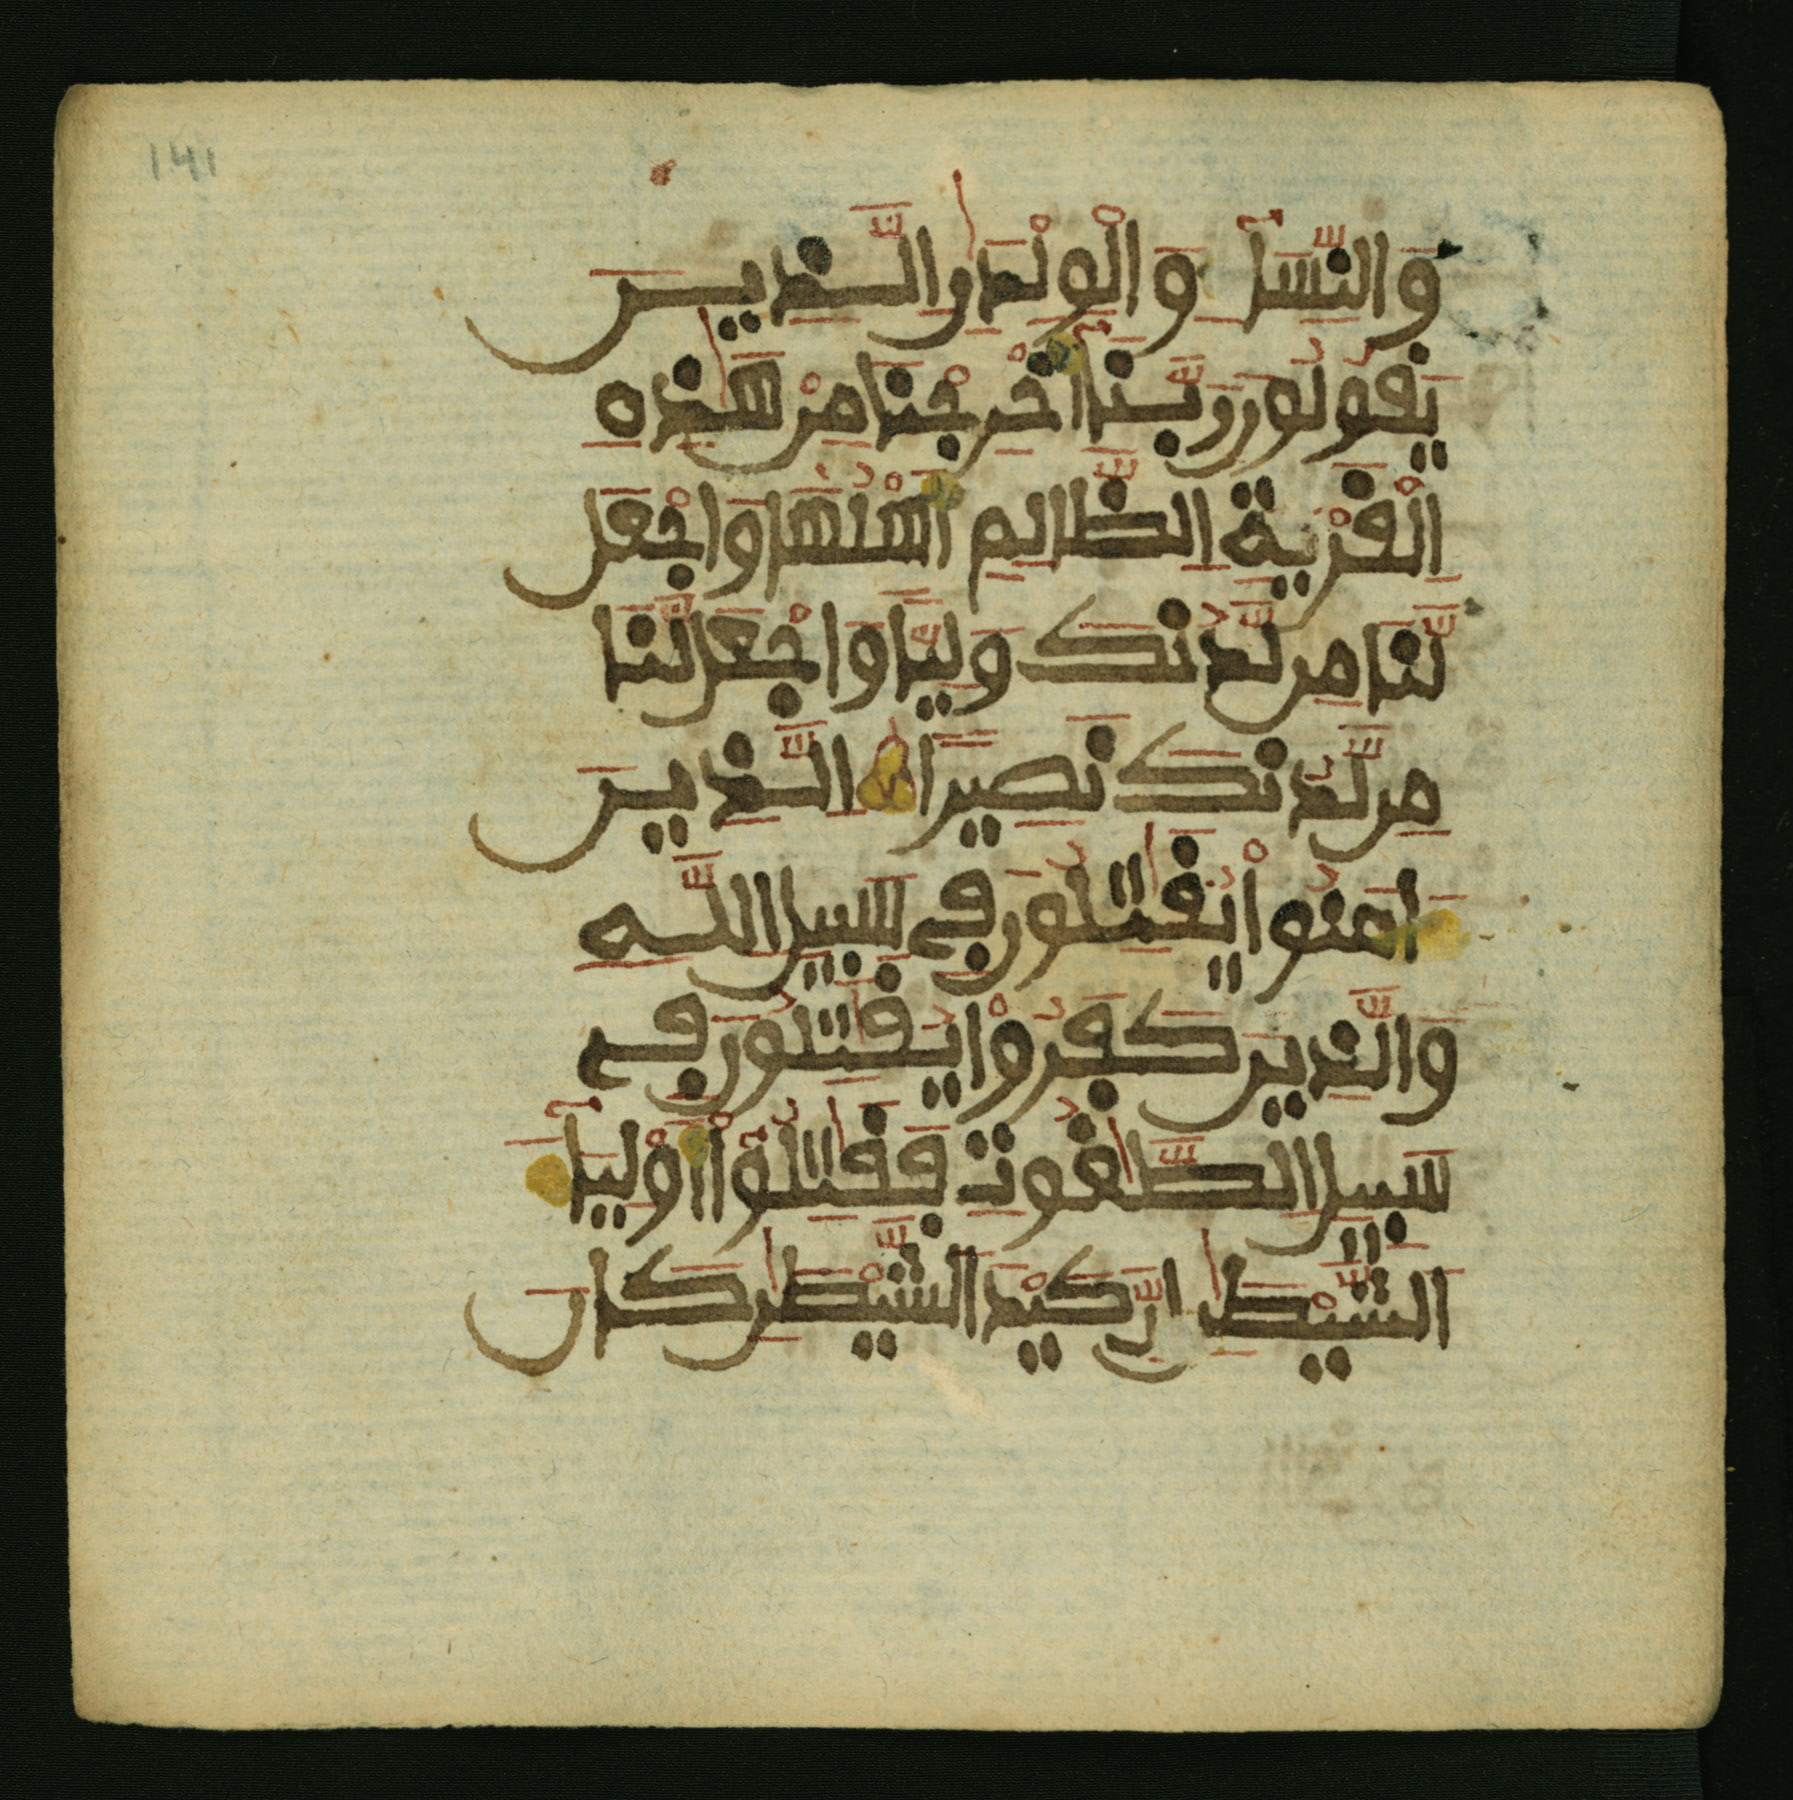 141
وَالنِّسَآءِ وَالْوِلْدَٰنِ الَّذِينَ
يَقُولُونَ رَبَّنَآ أَخْرِجْنَا مِنْ هَٰذِهِ
الْقَرْيَةِ الظَّالِمِ أَهْلُهَا وَاجْعَل
لَّنَا مِن لَّدُنكَ وَلِيّٗا وَاجْعَل لَّنَا
مِن لَّدُنكَ نَصِيراً الَّذِينَ
ءَامَنُواْ يُقَٰتِلُونَ فِي سَبِيلِ اللَّهِ
وَالَّذِينَ كَفَرُواْ يُقَٰتِلُونَ فِي
سَبِيلِ الطَّٰغُوتِ فَقَٰتِلُوٓاْ أَوْلِيَآءَ
الشَّيْطَٰنِ إِنَّ كَيْدَ الشَّيْطَٰنِ كَانَ